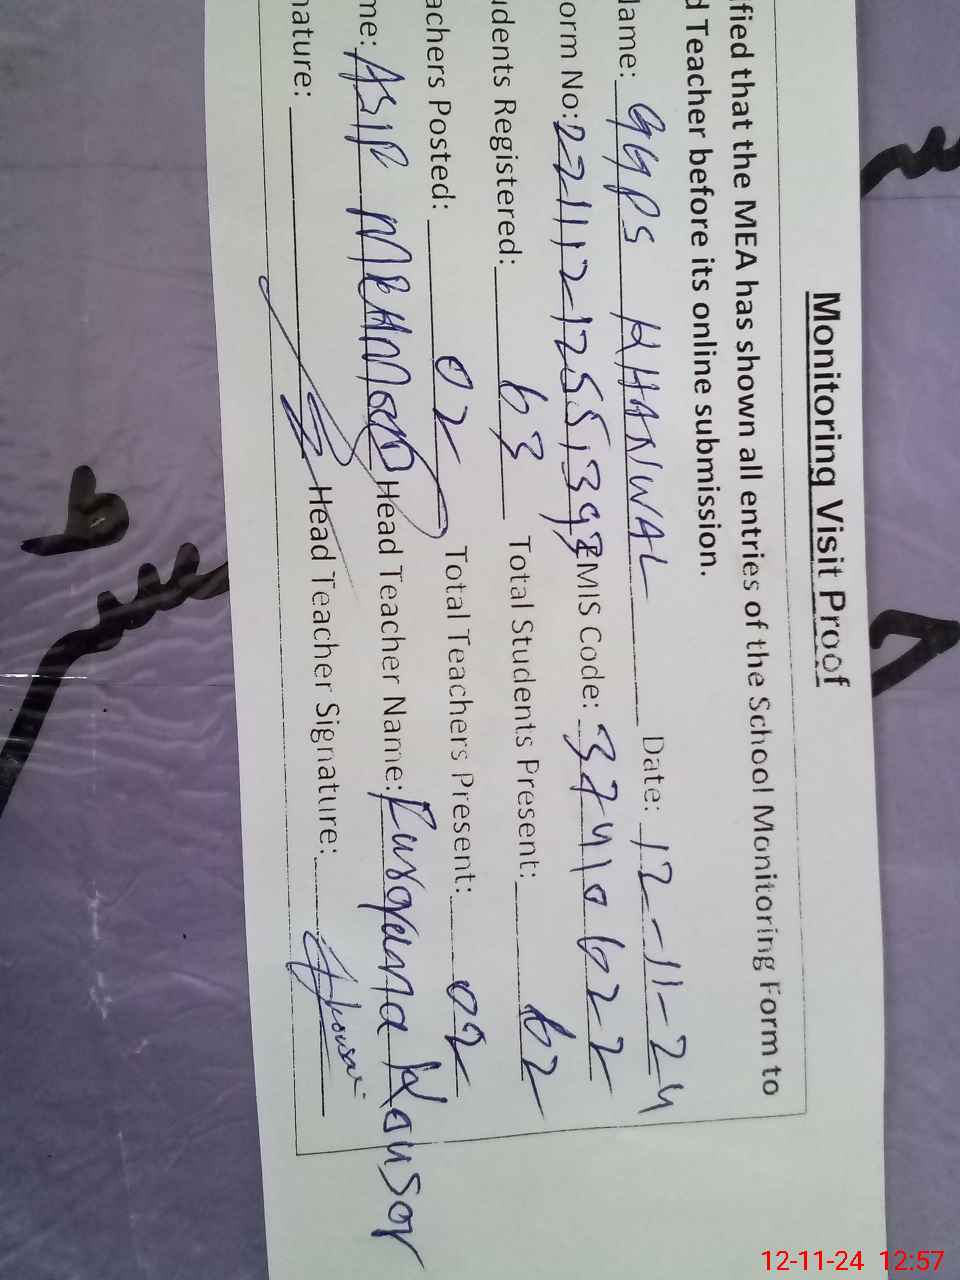 Monitoring Visit Proof
fied that the MEA has shown all entries of the School Monitoring Form to
d Teacher before its online submission.
lame: GGPS KHANWAL Date: 12-11-24
orm No: EMIS Code: 37410622
udents Registered: 63 Total Students Present: 62
achers Posted: 02 Total Teachers Present: 02
me: ASIF MEHMOOD Head Teacher Name: Kausar
nature: Head Teacher Signature:
12-11-24 12:57